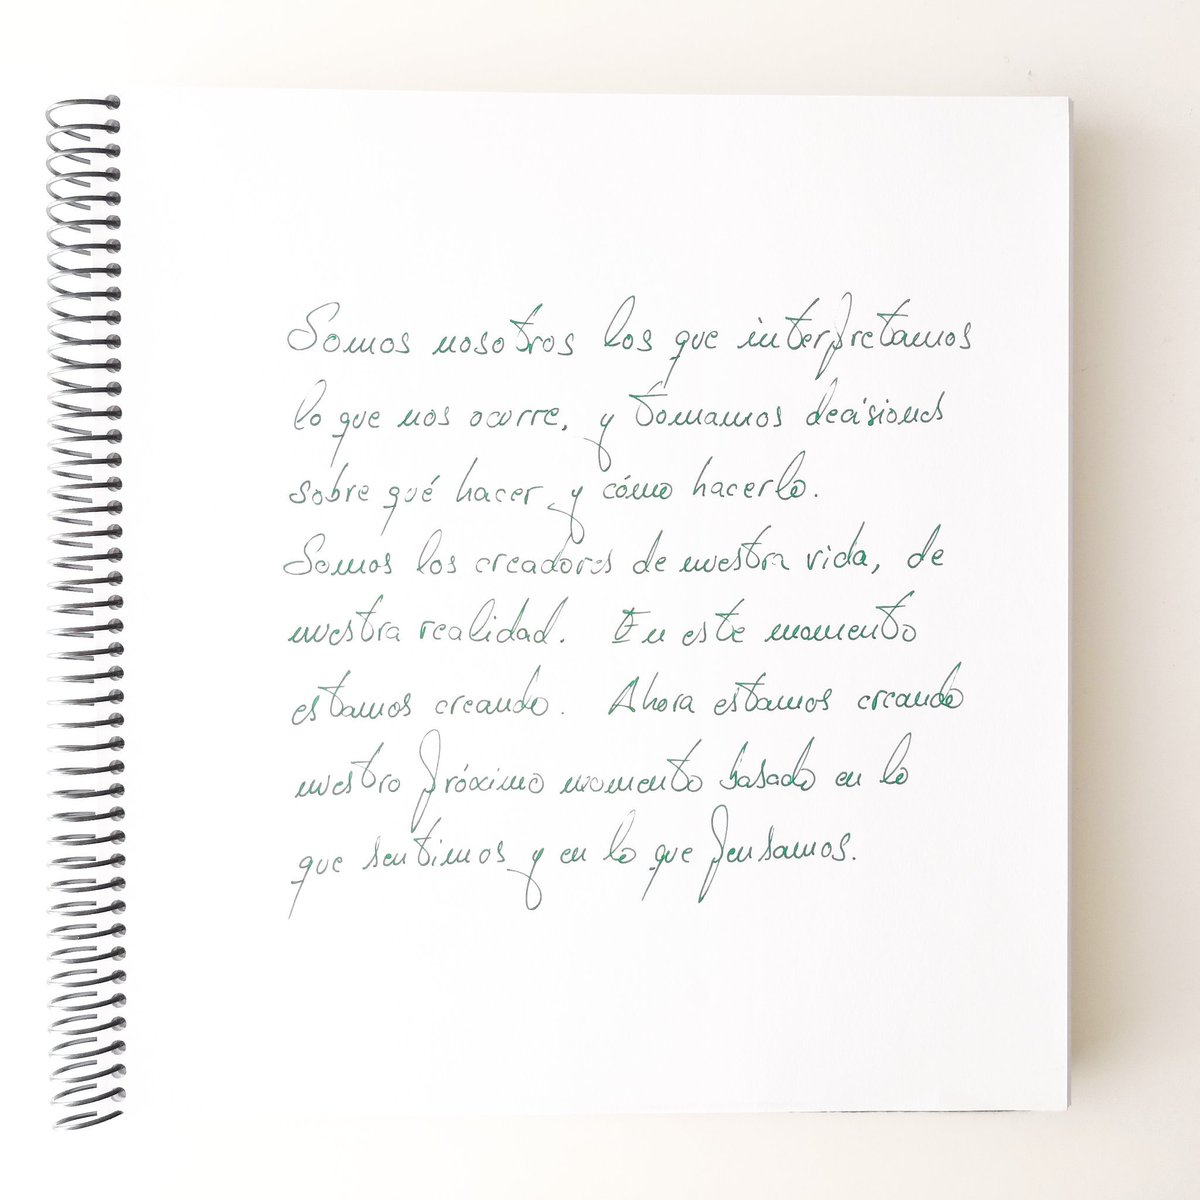 Somos nosotros los que interpretamos
lo que nos ocurre, y tomamos decisiones
sobre qué hacer y cómo hacerlo.
Somos los creadores de nuestra vida, de
nuestra realidad. En este momento
estamos creando. Ahora estamos creando
nuestro próximo momento basado en lo
que sentimos y en lo que pensamos.